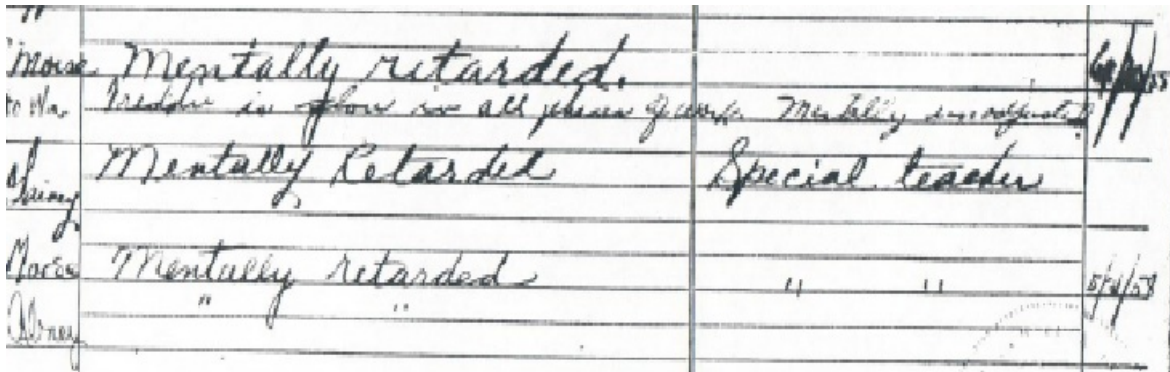 Morse Mentally retarded.
to Wm. Freddie is slow in all phases of work. Mentally
Mentally Retarded Special teacher
Morse Mentally retarded " " 5/4/53
Abney " "